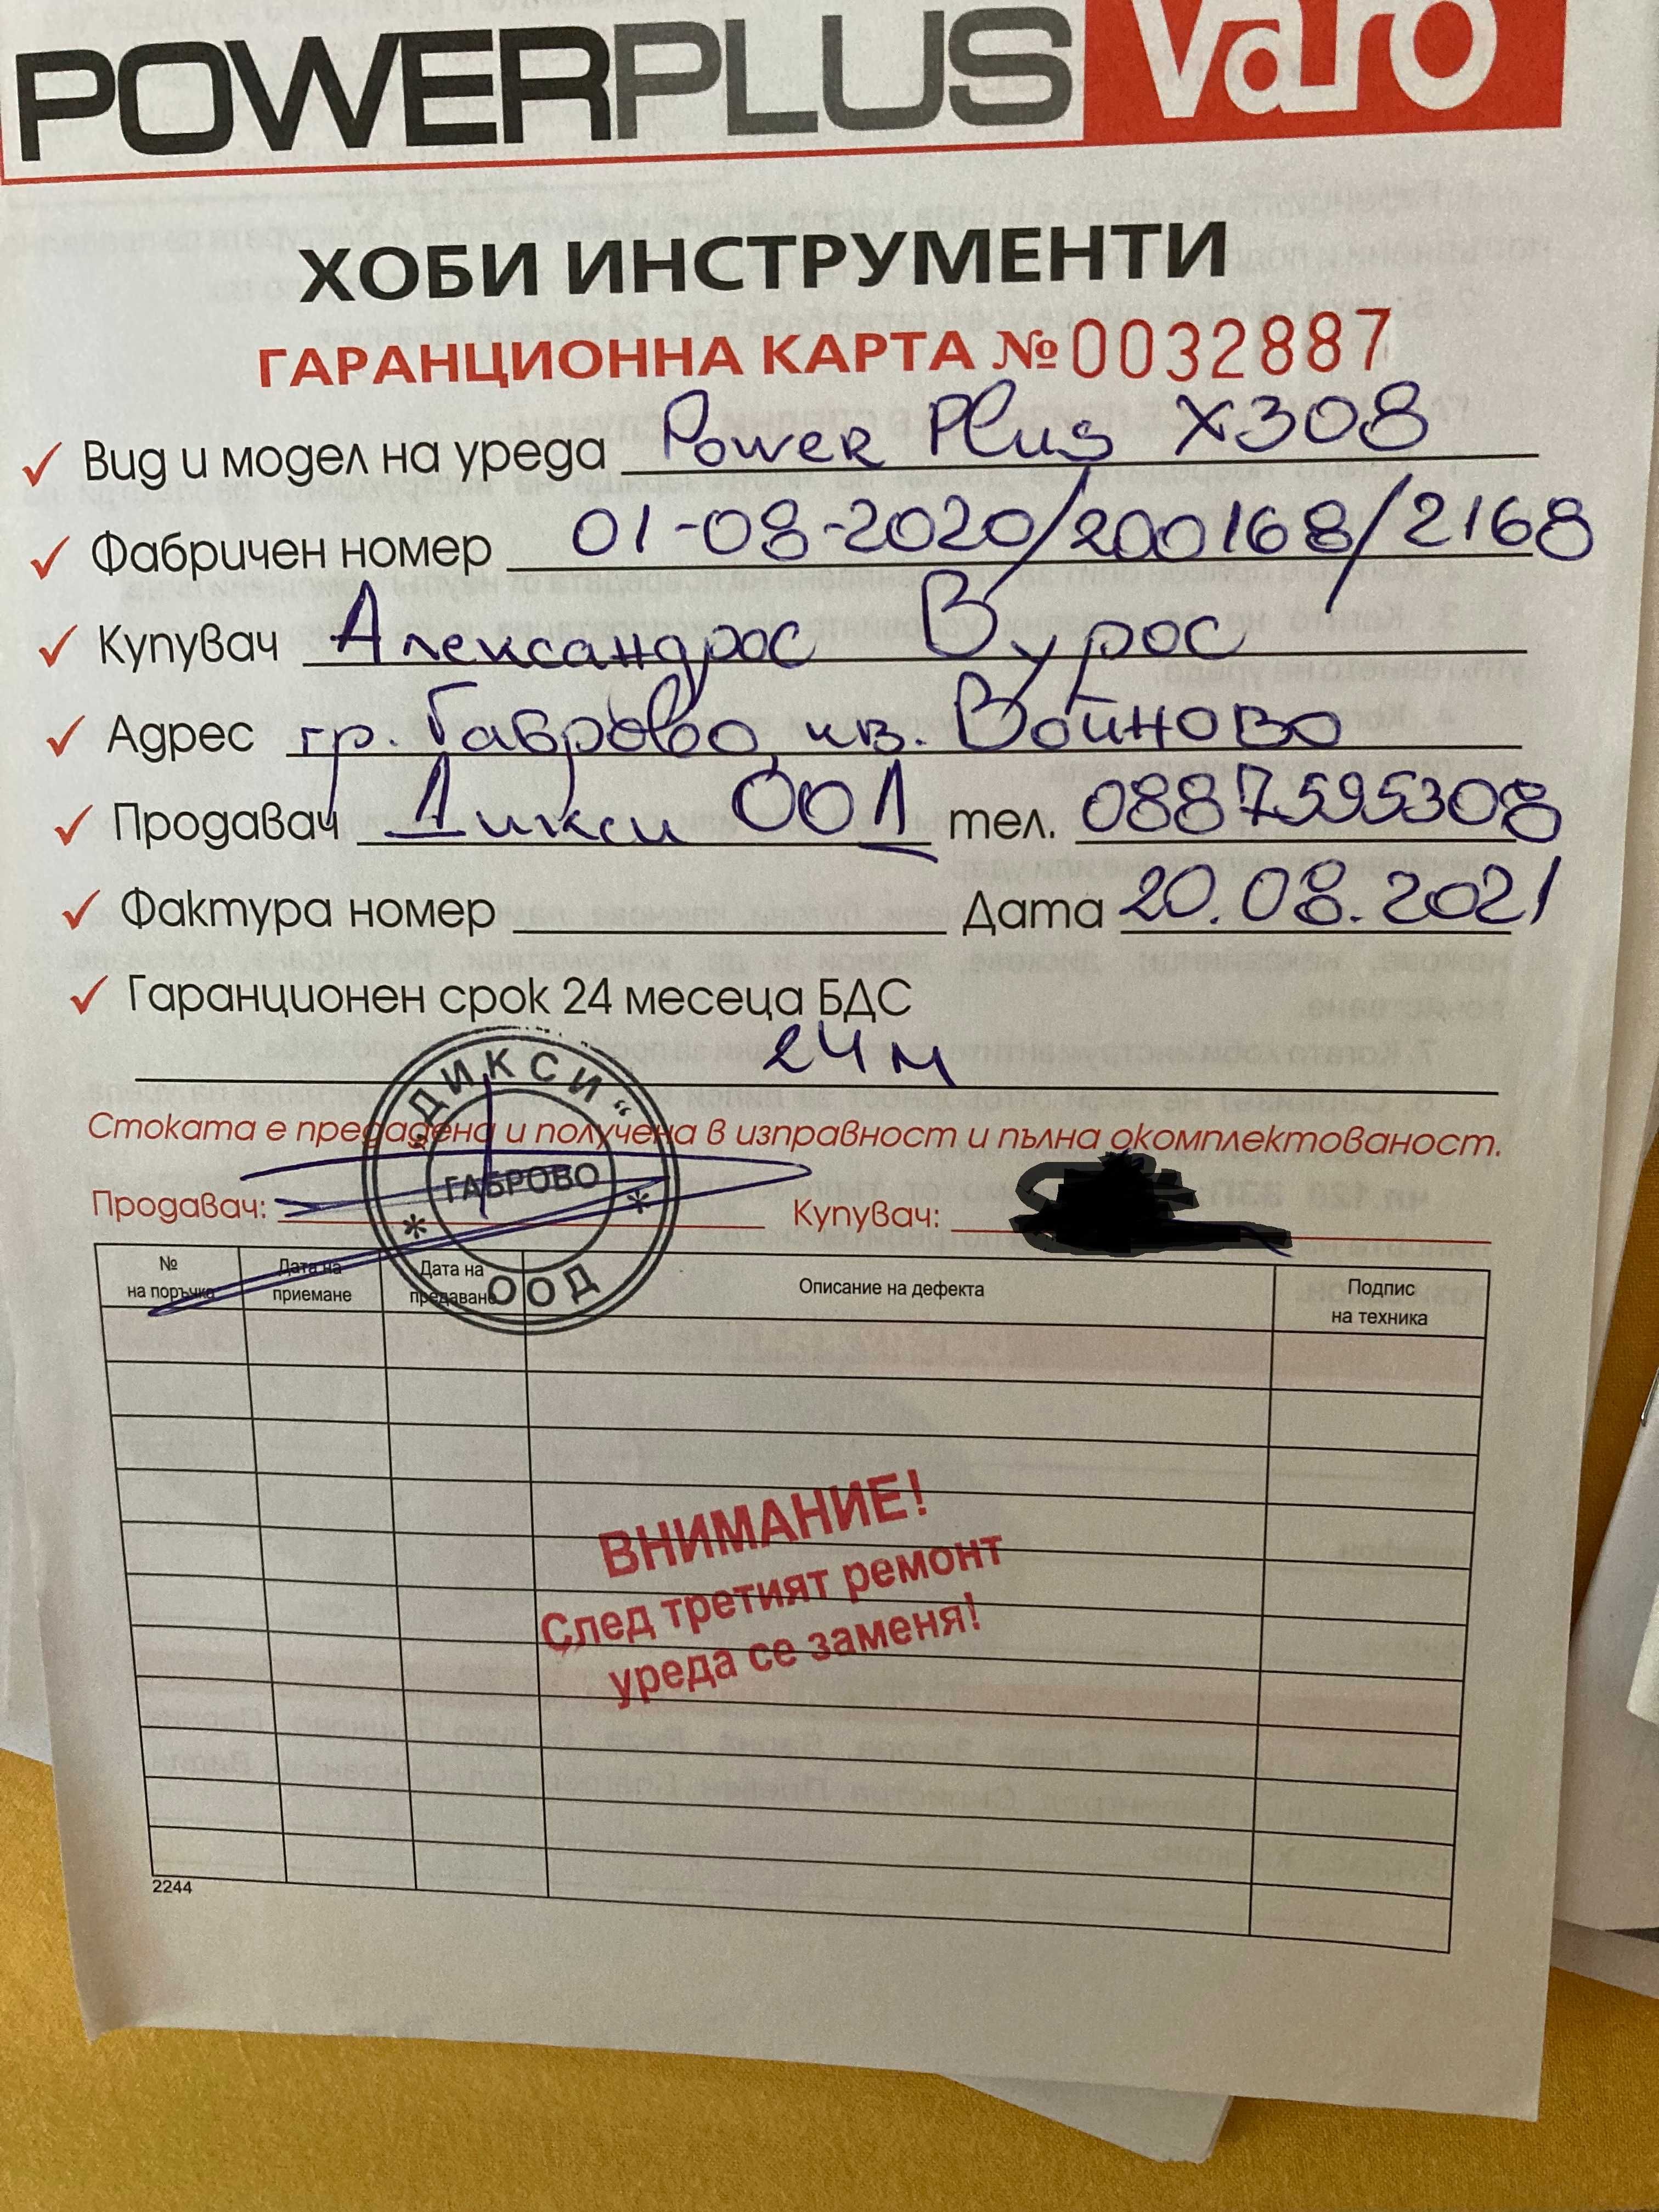 POWERPLUS Varo
ХОБИ ИНСТРУМЕНТИ
ГАРАНЦИОННА КАРТА № 0032887
Вид и модел на уреда Power Plus X308
Фабричен номер 01-08-2020/200168/2168
Купувач Александрос Вурос
Адрес гр. Габрово, кв. Войново
Продавач Дикси ООД тел. 0887595308
Фактура номер Дата 20.08.2021
Гаранционен срок 24 месеца БДС
24 м
Стоката е предадена и получена в изправност и пълна окомплектованост.
Продавач: Купувач:
"ДИКСИ"
ГАБРОВО
* *
ООД
№ на поръчка
Дата на приемане
Дата на предаване
Описание на дефекта
Подпис на техника
ВНИМАНИЕ!
След третият ремонт
уреда се заменя!
2244